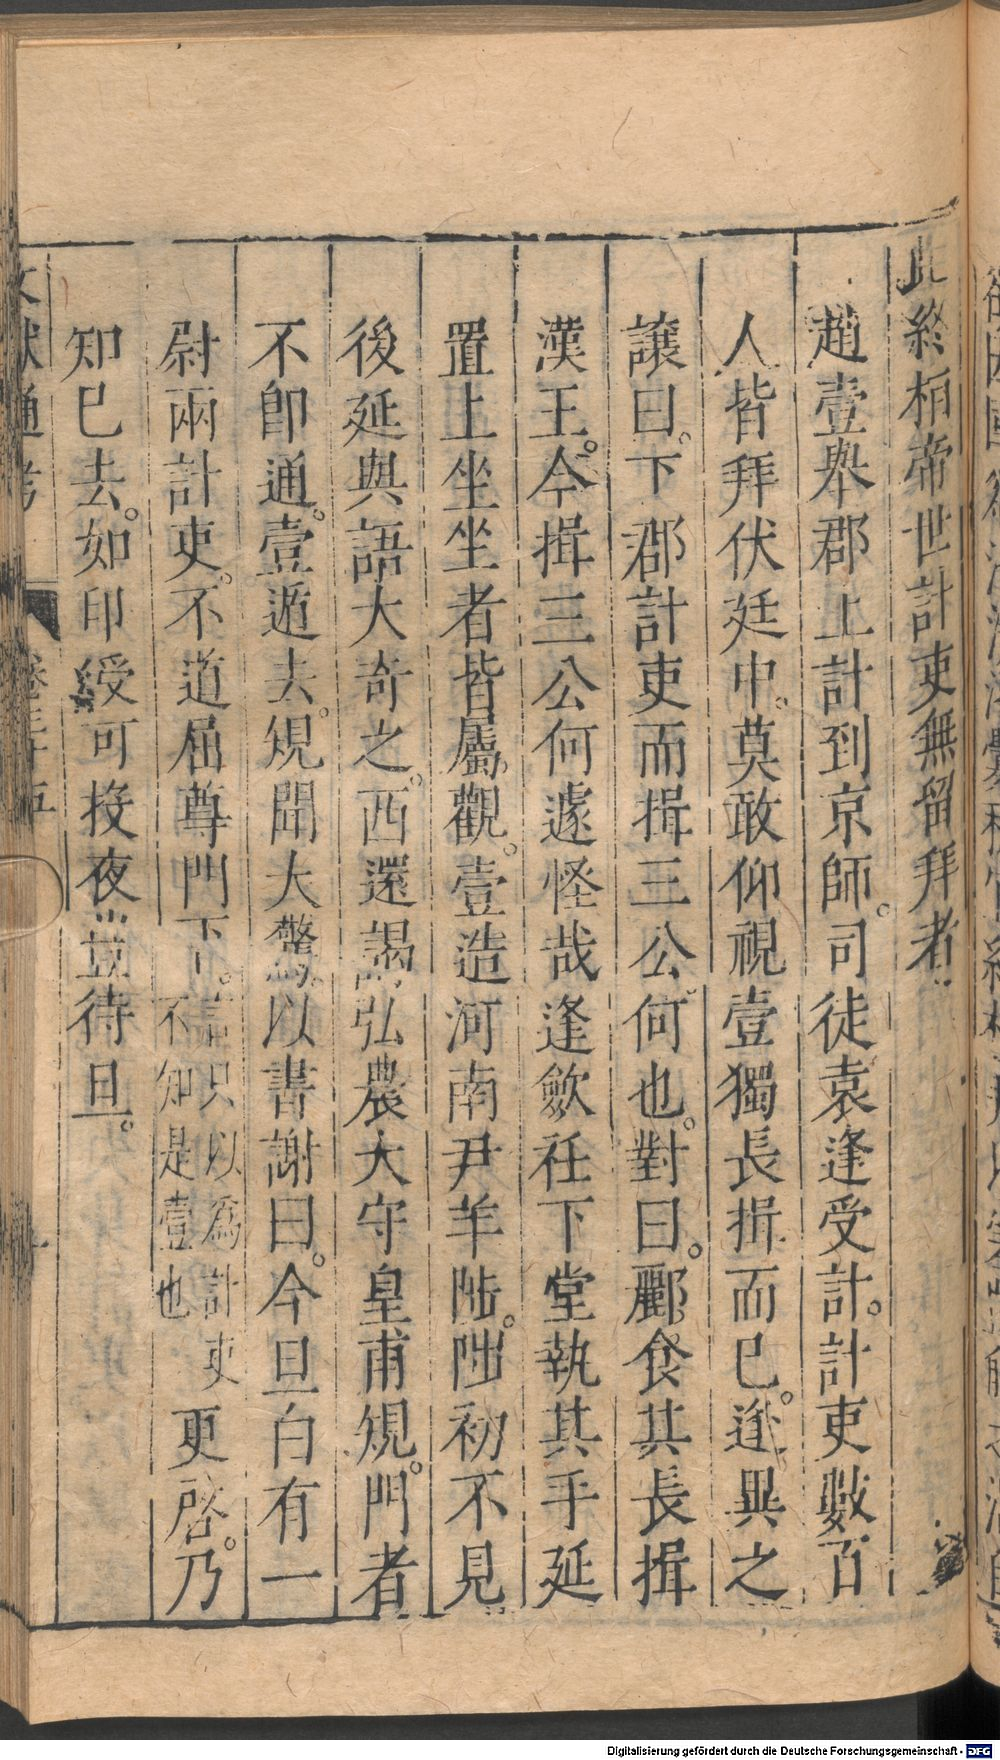 此終桓帝世計吏無留拜者
趙壹舉郡上計到京師。司徒袁逢受計。計吏數百
人皆拜伏廷中。莫敢仰視壹獨長揖而已。逢異之
讓曰。下郡計吏而揖三公何也。對曰。酈食其長揖
漢王。今揖三公何遽怪哉逢斂衽下堂執其手延
置上坐坐者皆屬觀。壹造河南尹羊陟。陟初不見
後延與語大奇之。西還謁弘農大守皇甫規。門者
不即通。壹遁去。規聞大驚。以書謝曰。今旦白有一
尉兩計吏。不道屈尊門下。言只以為計吏不知是壹也更啓。乃
知已去。如印綬可投夜豈待旦。
文獻通考
卷三十五
Digitalisierung gefördert durch die Deutsche Forschungsgemeinschaft - DFG